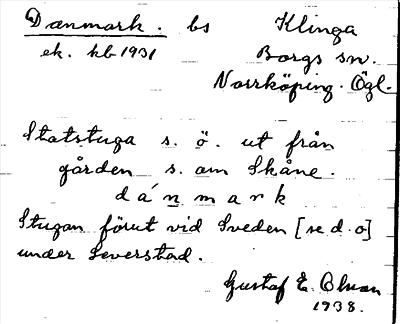 Danmark. bs Klinga
ek. kb 1931 Borgs sn.
Norrköping. Ögl.
Statstuga s. ö. ut från
gården s. om Skåne.
dánmark
Stugan förut vid Sveden [se d.o]
under Leverstad.
Gustaf E. Olson
1938.